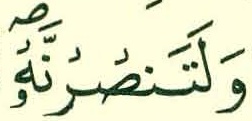 وَلَتَنصُرُنَّهُۥۖ